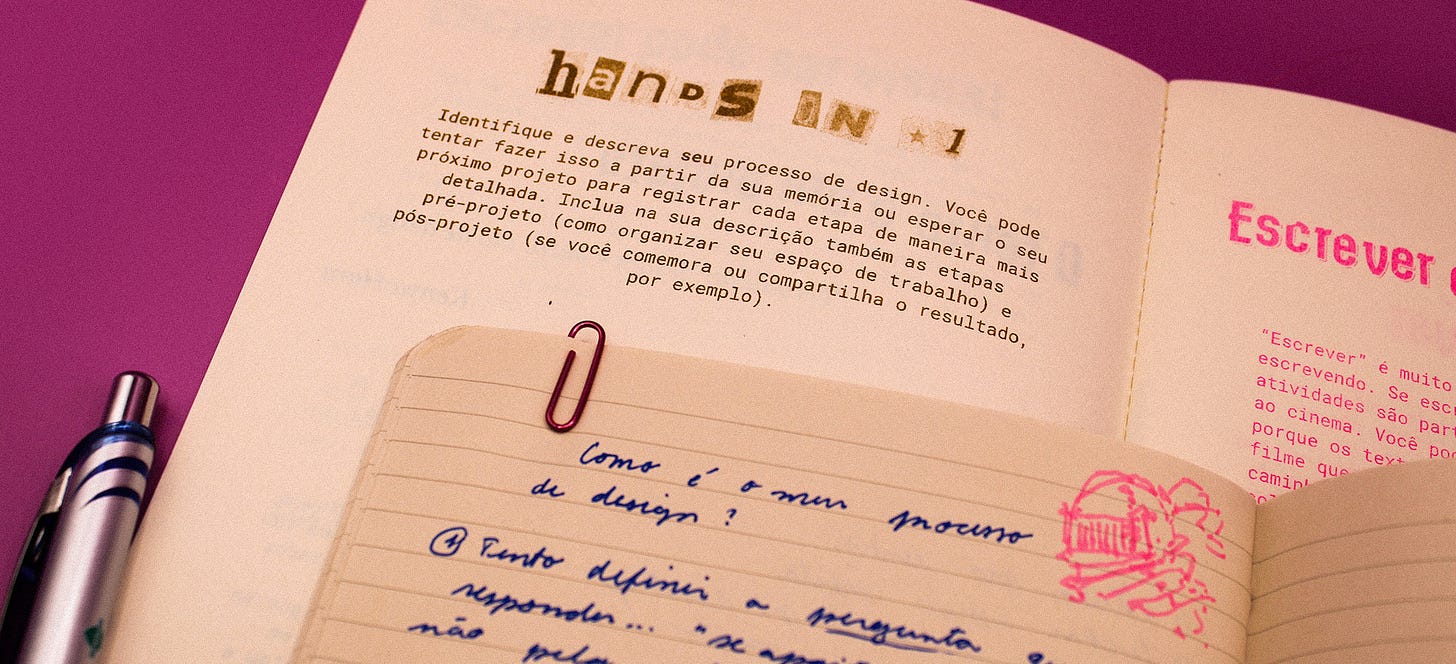 hands in ★ 1
Identifique e descreva seu processo de design. Você pode
tentar fazer isso a partir da sua memória ou esperar o seu
próximo projeto para registrar cada etapa de maneira mais
detalhada. Inclua na sua descrição também as etapas
pré-projeto (como organizar seu espaço de trabalho) e
pós-projeto (se você comemora ou compartilha o resultado,
por exemplo).
Como é o meu processo
de design?
1 Tento definir a pergunta
responder... "se
não
Escrever
"Escrever" é muito
escrevendo. Se
atividades são
ao cinema. Você
porque os
filme que